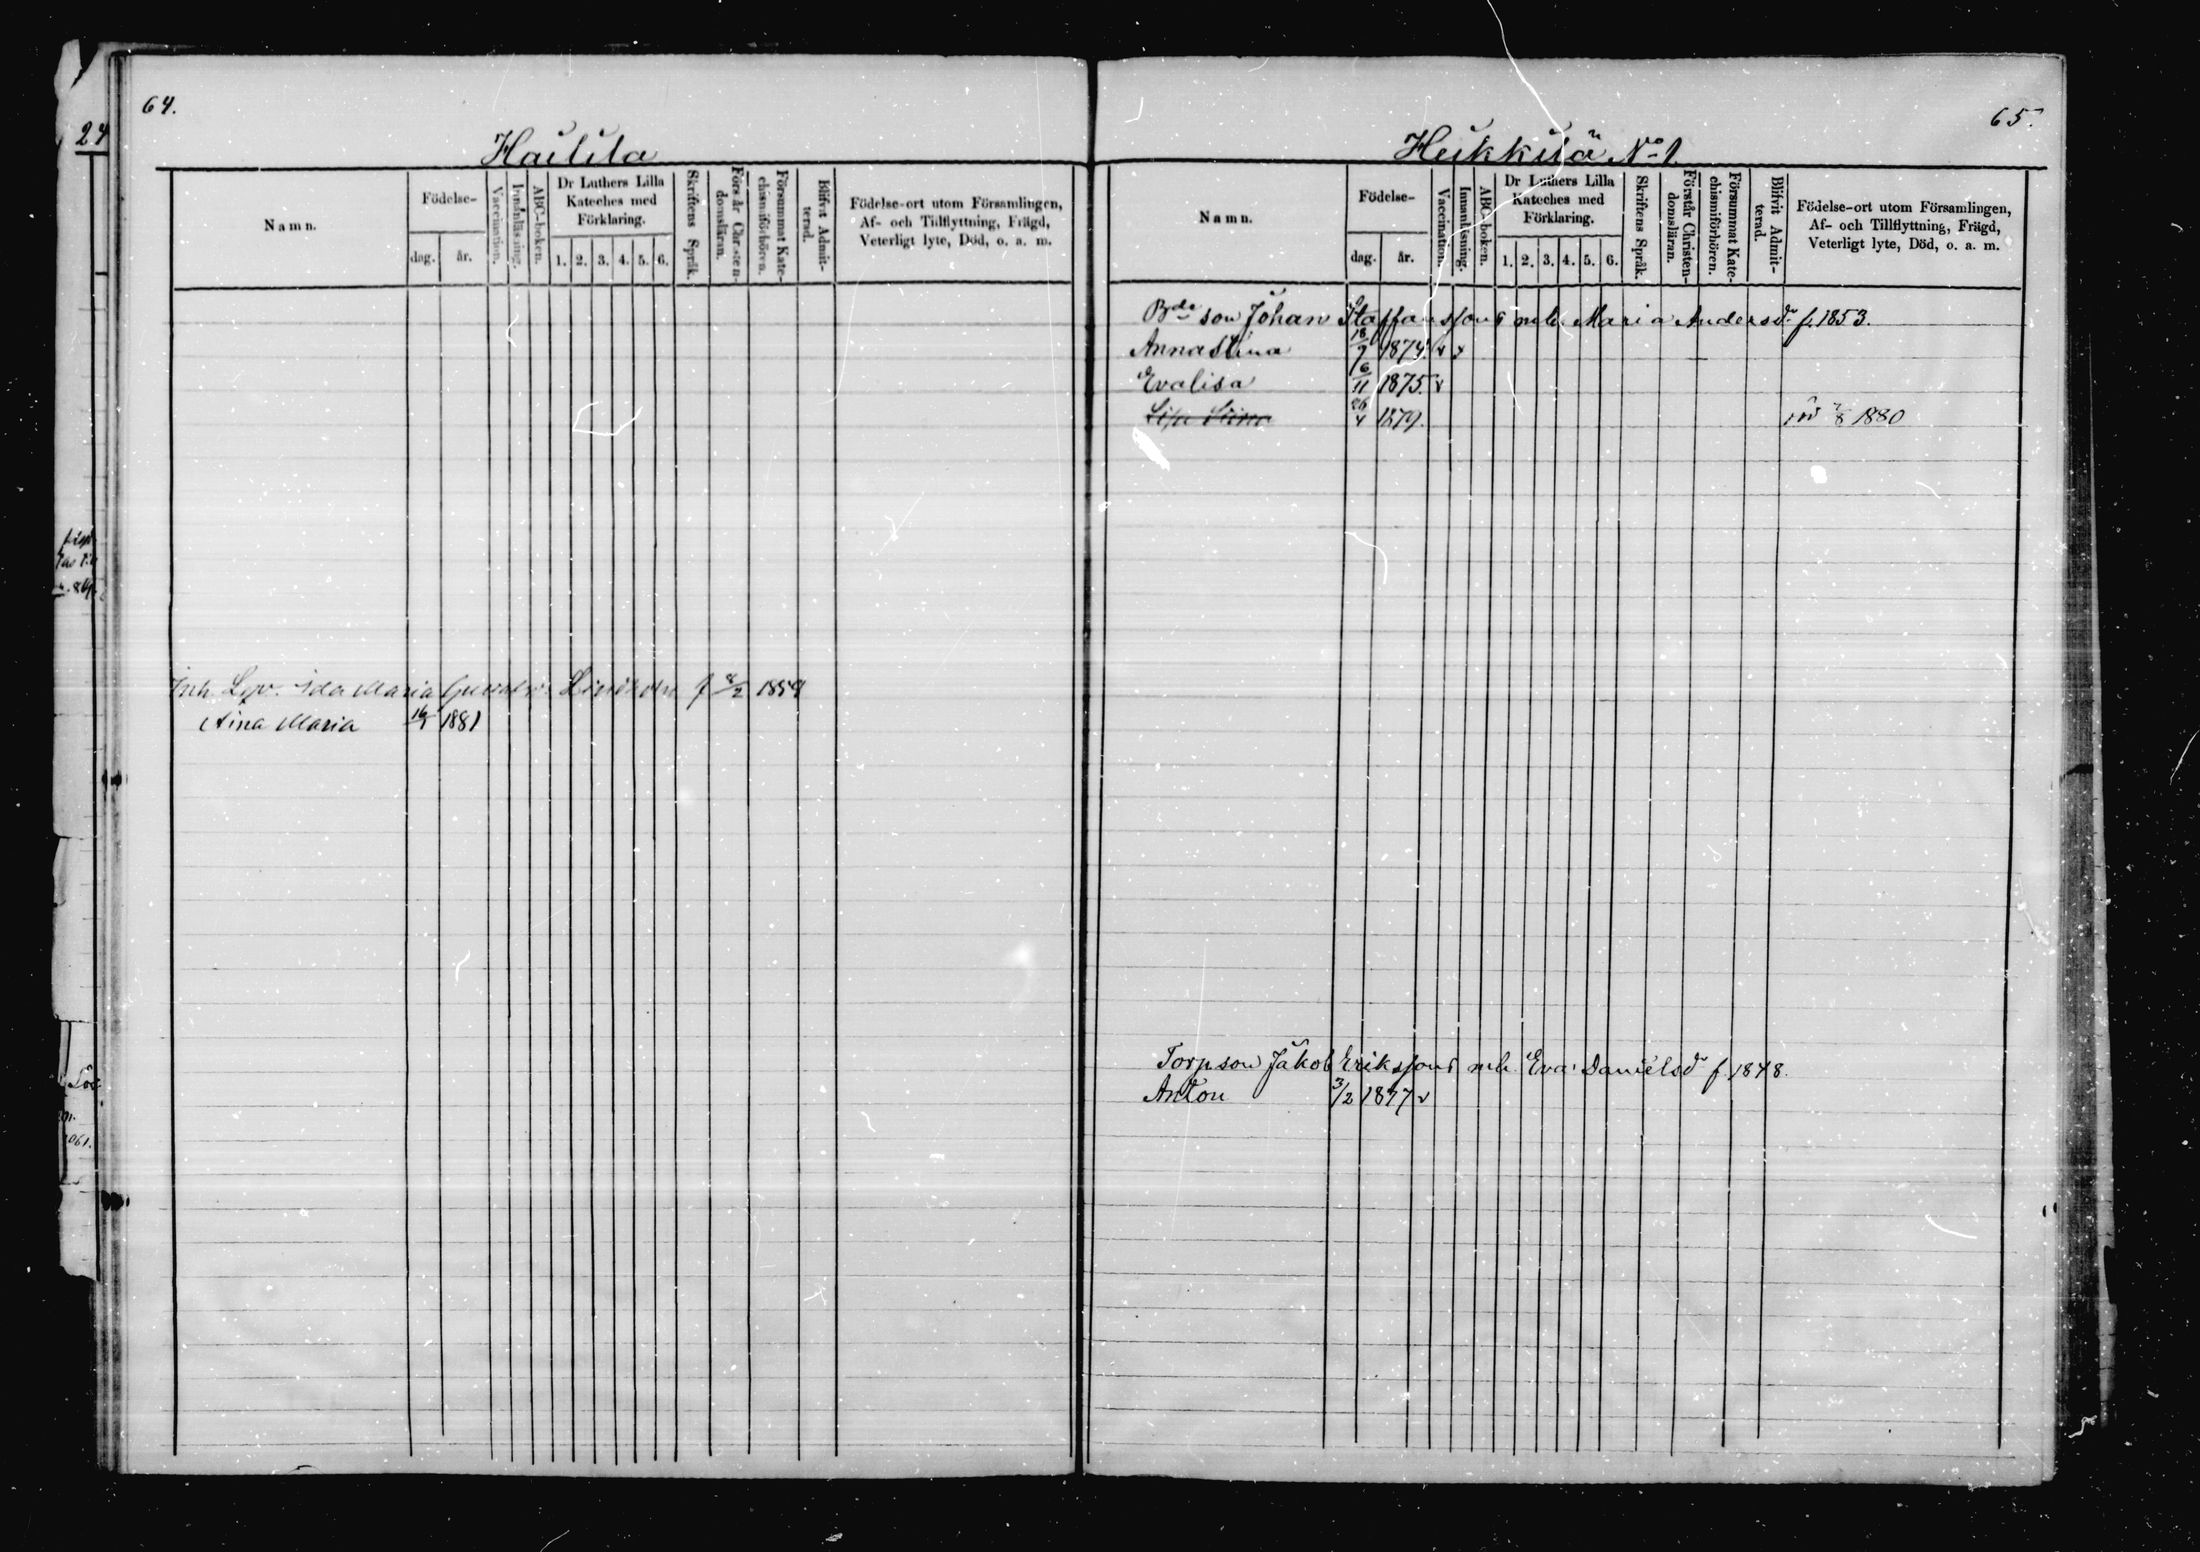 64.
Hailila
Namn.
Födelse-
dag.
år.
Vaccination.
Innanläsning.
ABC-boken.
Dr Luthers Lilla
Kateches med
Förklaring.
1. 2. 3. 4. 5. 6.
Skriftens Språk.
Förstår Christen-
domsläran.
Försummat Kate-
chismiförhören.
Blifvit Admit-
terad.
Födelse-ort utom Församlingen,
Af- och Tillflyttning, Frägd,
Veterligt lyte, Död, o. a. m.
Inh. Ida Maria f 8/2 1854
Aina Maria 16/1 1881
24
65.
Heikkilä No 1
Namn.
Födelse-
dag.
år.
Vaccination.
Innanläsning.
ABC-boken.
Dr Luthers Lilla
Kateches med
Förklaring.
1. 2. 3. 4. 5. 6.
Skriftens Språk.
Förstår Christen-
domsläran.
Försummat Kate-
chismiförhören.
Blifvit Admit-
terad.
Födelse-ort utom Församlingen,
Af- och Tillflyttning, Frägd,
Veterligt lyte, Död, o. a. m.
Bde son Johan Staffanssons mh. Maria Andersdr f. 1853.
Annastina 18/9 1874. v v
Evalisa 6/11 1875. v
Lisa Stina 26/4 1879. död 7/8 1880
Torp.son Jakob Erikssons mh. Eva Danielsdr f. 1848.
Anton 3/2 1877 v